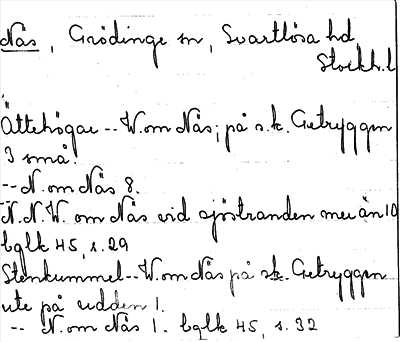 Näs, Grödinge sn, Svartlösa hd
Stockh.l
Ättehögar -- W. om Näs; på s.k. Getryggen
3 små!
-- N. om Näs 8.
N.N.W. om Näs vid sjöstranden mer än 10
bglk 45, s. 29
Stenkummel -- W om Näs på sk. Getryggen
ute på udden 1.
-- N. om Näs 1. bglk 45, s. 32